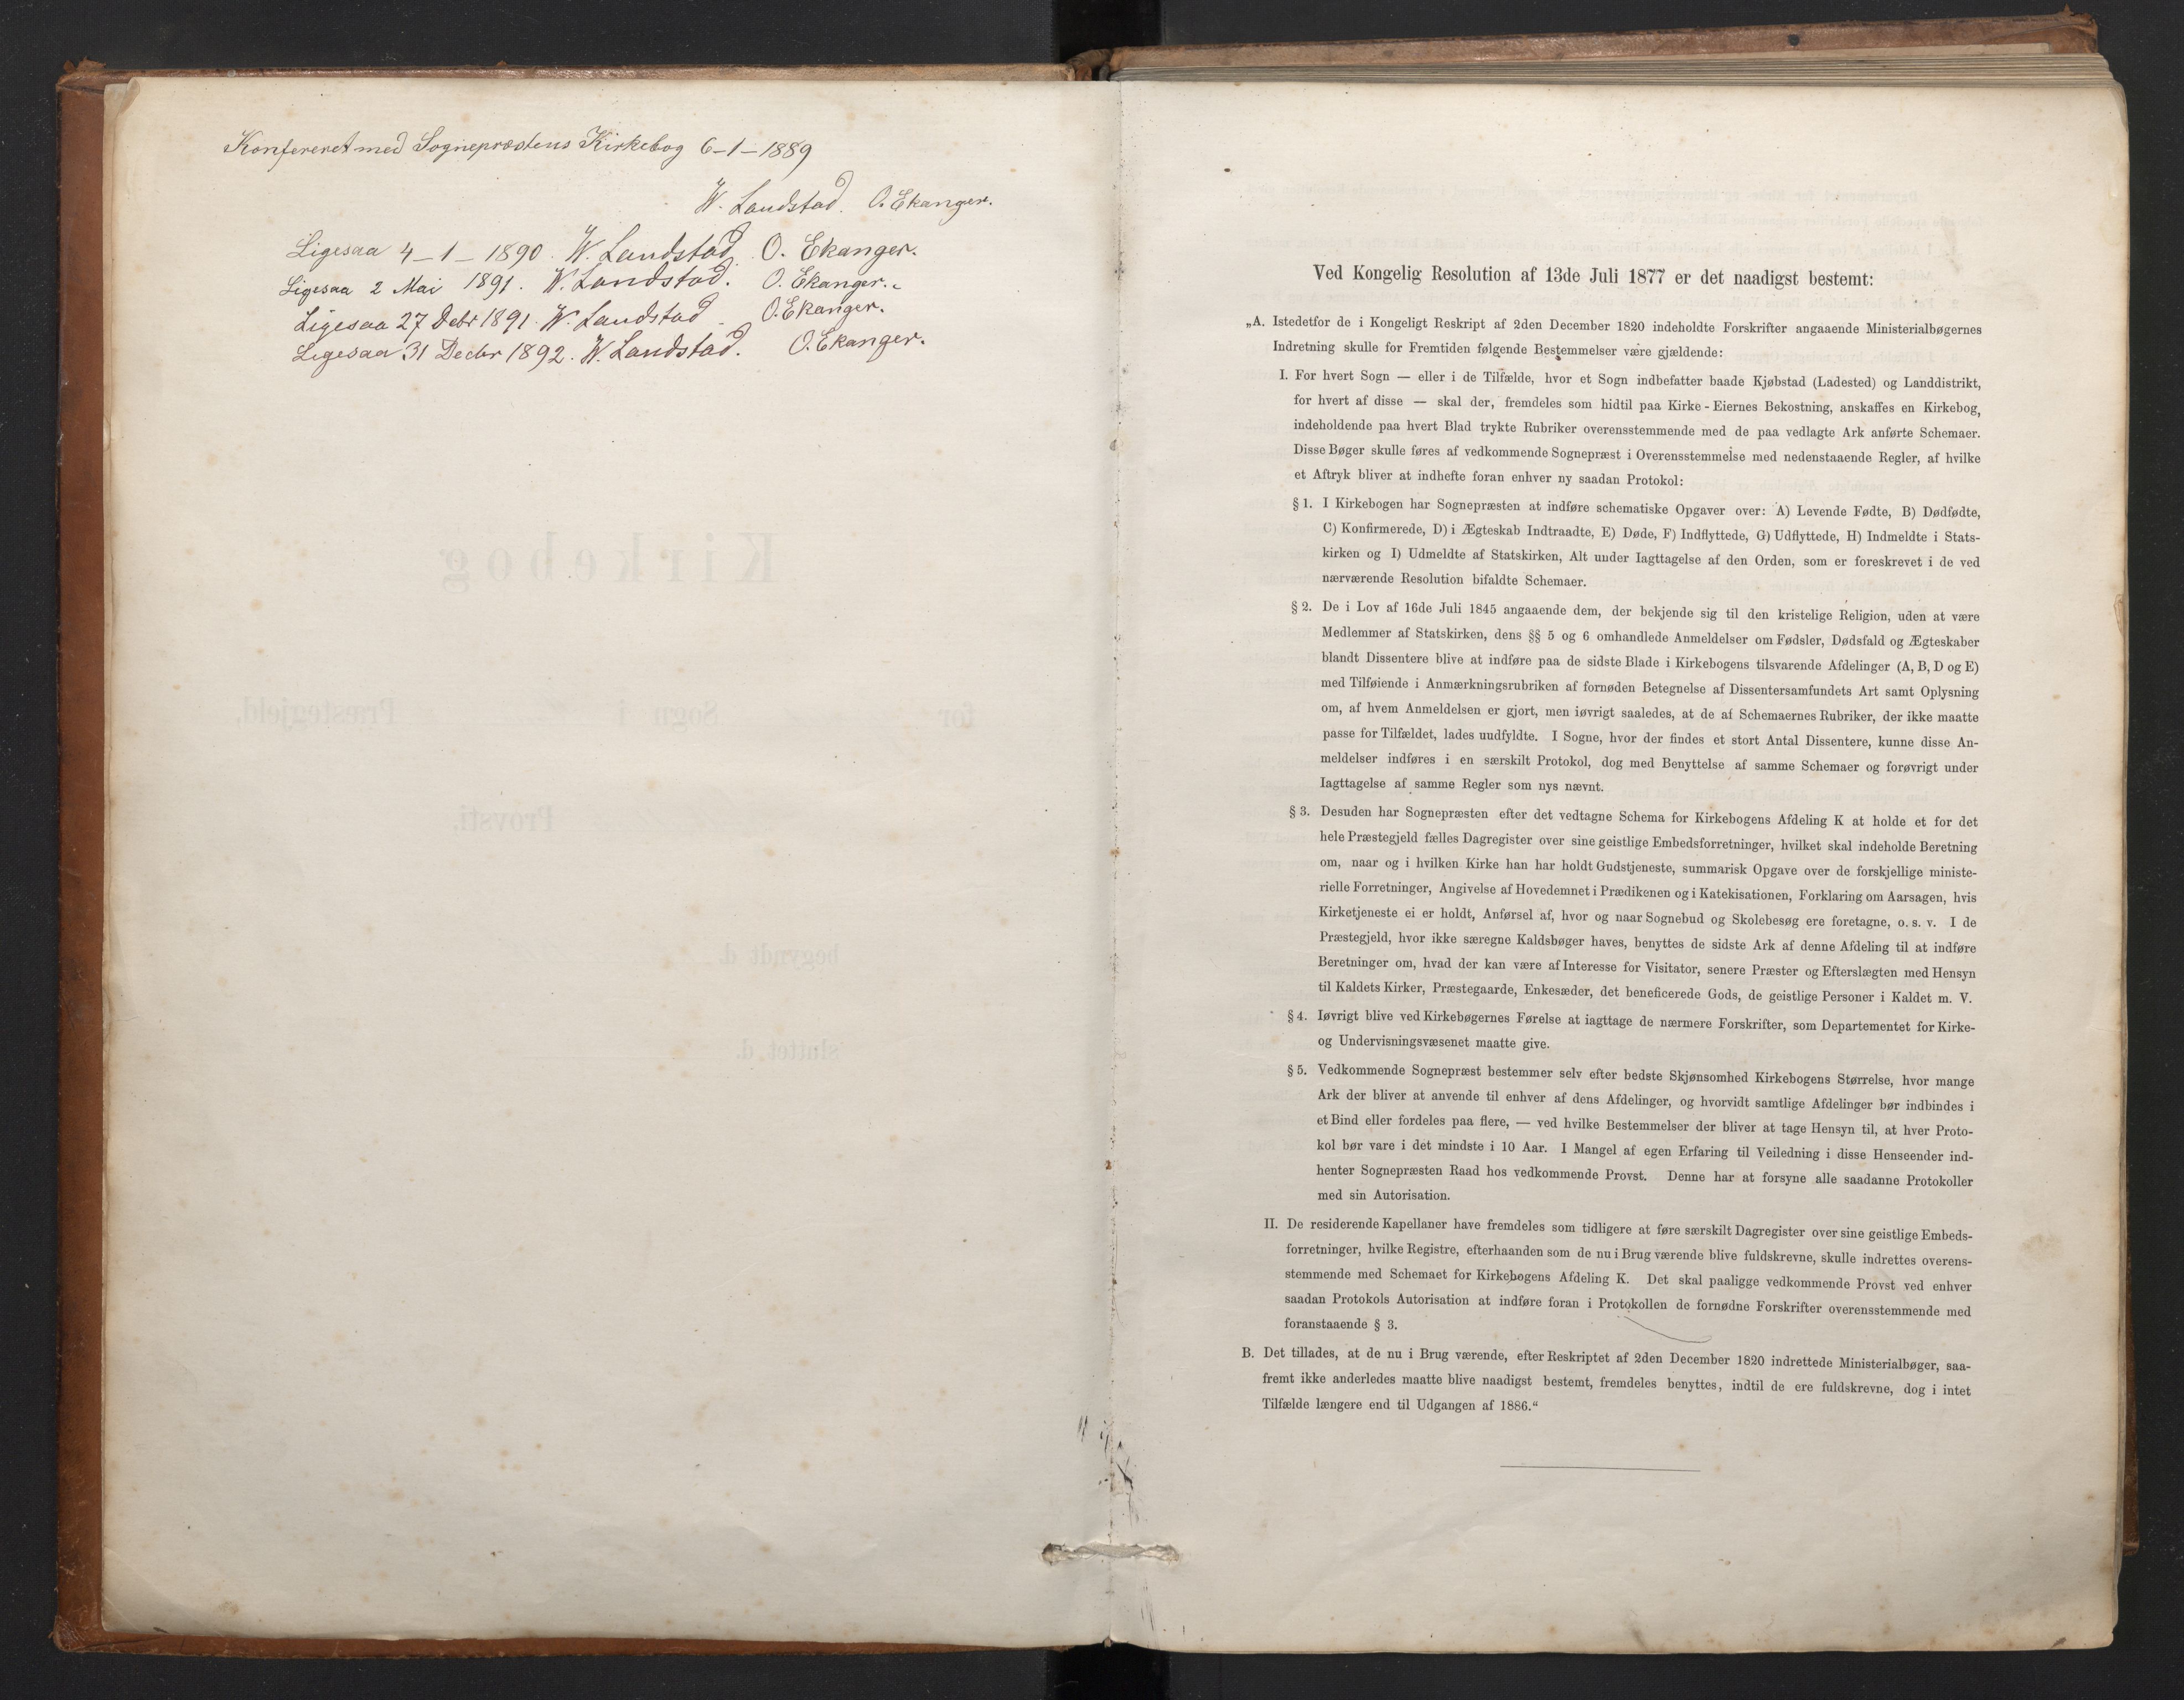 Konfereret med Sogneprestens Kirkebog 6-1-1889
W. Landstad. O. Ekanger.
Ligesaa 4-1-1890. W. Landstad. O. Ekanger.
Ligesaa 2 Mai 1891. W. Landstad. O. Ekanger.
Ligesaa 27 Debr 1891. W. Landstad. O. Ekanger.
Ligesaa 31 Decbr 1892. W. Landstad. O. Ekanger.
Kirkebog
for Sogn i Præstegjeld,
Provsti.
begyndt d.
sluttet d.
Ved Kongelig Resolution af 13de Juli 1877 er det naadigst bestemt:
„A. Istedetfor de i Kongeligt Reskript af 2den December 1820 indeholdte Forskrifter angaaende Ministerialbøgernes
Indretning skulle for Fremtiden følgende Bestemmelser være gjældende:
I. For hvert Sogn — eller i de Tilfælde, hvor et Sogn indbefatter baade Kjøbstad (Ladested) og Landdistrikt,
for hvert af disse — skal der, fremdeles som hidtil paa Kirke-Eiernes Bekostning, anskaffes en Kirkebog,
indeholdende paa hvert Blad trykte Rubriker overensstemmende med de paa vedlagte Ark anførte Schemaer.
Disse Bøger skulle føres af vedkommende Sognepræst i Overensstemmelse med nedenstaaende Regler, af hvilke
et Aftryk bliver at indhefte foran enhver ny saadan Protokol:
§ 1. I Kirkebogen har Sognepræsten at indføre schematiske Opgaver over: A) Levende Fødte, B) Dødfødte,
C) Konfirmerede, D) i Ægteskab Indtraadte, E) Døde, F) Indflyttede, G) Udflyttede, H) Indmeldte i Stats-
kirken og I) Udmeldte af Statskirken, Alt under Iagttagelse af den Orden, som er foreskrevet i de ved
nærværende Resolution bifaldte Schemaer.
§ 2. De i Lov af 16de Juli 1845 angaaende dem, der bekjende sig til den kristelige Religion, uden at være
Medlemmer af Statskirken, dens §§ 5 og 6 omhandlede Anmeldelser om Fødsler, Dødsfald og Ægteskaber
blandt Dissentere blive at indføre paa de sidste Blade i Kirkebogens tilsvarende Afdelinger (A, B, D og E)
med Tilføiende i Anmærkningsrubriken af fornøden Betegnelse af Dissentersamfundets Art samt Oplysning
om, af hvem Anmeldelsen er gjort, men iøvrigt saaledes, at de af Schemaernes Rubriker, der ikke maatte
passe for Tilfældet, lades uudfyldte. I Sogne, hvor der findes et stort Antal Dissentere, kunne disse An-
meldelser indføres i en særskilt Protokol, dog med Benyttelse af samme Schemaer og forøvrigt under
Iagttagelse af samme Regler som nys nævnt.
§ 3. Desuden har Sognepræsten efter det vedtagne Schema for Kirkebogens Afdeling K at holde et for det
hele Præstegjeld fælles Dagregister over sine geistlige Embedsforretninger, hvilket skal indeholde Beretning
om, naar og i hvilken Kirke han har holdt Gudstjeneste, summarisk Opgave over de forskjellige ministe-
rielle Forretninger, Angivelse af Hovedemnet i Prædikenen og i Katekisationen, Forklaring om Aarsagen, hvis
Kirketjeneste ei er holdt, Anførsel af, hvor og naar Sognebud og Skolebesøg ere foretagne, o. s. v. I de
Præstegjeld, hvor ikke særegne Kaldsbøger haves, benyttes de sidste Ark af denne Afdeling til at indføre
Beretninger om, hvad der kan være af Interesse for Visitator, senere Præster og Efterslægten med Hensyn
til Kaldets Kirker, Præstegaarde, Enkesæder, det beneficerede Gods, de geistlige Personer i Kaldet m. V.
§ 4. Iøvrigt blive ved Kirkebøgernes Førelse at iagttage de nærmere Forskrifter, som Departementet for Kirke-
og Undervisningsvæsenet maatte give.
§ 5. Vedkommende Sognepræst bestemmer selv efter bedste Skjønsomhed Kirkebogens Størrelse, hvor mange
Ark der bliver at anvende til enhver af dens Afdelinger, og hvorvidt samtlige Afdelinger bør indbindes i
et Bind eller fordeles paa flere, — ved hvilke Bestemmelser der bliver at tage Hensyn til, at hver Proto-
kol bør vare i det mindste i 10 Aar. I Mangel af egen Erfaring til Veiledning i disse Henseender ind-
henter Sognepræsten Raad hos vedkommende Provst. Denne har at forsyne alle saadanne Protokoller
med sin Autorisation.
II. De residerende Kapellaner have fremdeles som tidligere at føre særskilt Dagregister over sine geistlige Embeds-
forretninger, hvilke Registre, efterhaanden som de nu i Brug værende blive fuldskrevne, skulle indrettes overens-
stemmende med Schemaet for Kirkebogens Afdeling K. Det skal paaligge vedkommende Provst ved enhver
saadan Protokols Autorisation at indføre foran i Protokollen de fornødne Forskrifter overensstemmende med
foranstaaende § 3.
B. Det tillades, at de nu i Brug værende, efter Reskriptet af 2den December 1820 indrettede Ministerialbøger, saa-
fremt ikke anderledes maatte blive naadigst bestemt, fremdeles benyttes, indtil de ere fuldskrevne, dog i intet
Tilfælde længere end til Udgangen af 1886.“